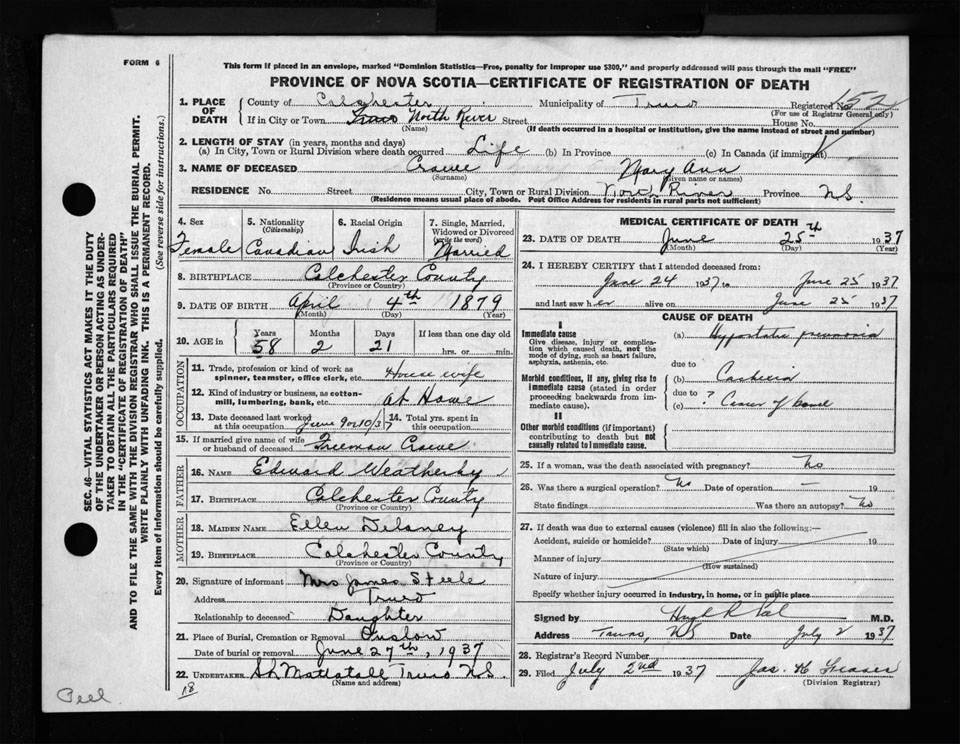 FORM 6
This form if placed in an envelope, marked "Dominion Statistics—Free, penalty for improper use $300," and properly addressed will pass through the mail "FREE"
PROVINCE OF NOVA SCOTIA—CERTIFICATE OF REGISTRATION OF DEATH
1. PLACE OF DEATH
County of Colchester Municipality of Truro Registered No. 152
(For use of Registrar General only)
If in City or Town Truro North River Street House No.
(Name) (If death occurred in a hospital or institution, give the name instead of street and number)
2. LENGTH OF STAY (in years, months and days)
(a) In City, Town or Rural Division where death occurred Life (b) In Province (c) In Canada (if immigrant)
3. NAME OF DECEASED Crowe Mary Ann
(Surname) (Given name or names)
RESIDENCE No. Street City, Town or Rural Division North River Province N.S.
(Residence means usual place of abode. Post Office Address for residents in rural parts not sufficient)
4. Sex Female
5. Nationality (Citizenship) Canadian
6. Racial Origin Irish
7. Single, Married, Widowed or Divorced (write the word) Married
8. BIRTHPLACE Colchester County
(Province or County)
9. DATE OF BIRTH April 4th 1879
(Month) (Day) (Year)
10. AGE Years 58 Months 2 Days 21 If less than one day old
hrs. or min.
OCCUPATION
11. Trade, profession or kind of work as spinner, teamster, office clerk, etc. House wife
12. Kind of industry or business, as cotton-mill, lumbering, bank, etc. at Home
13. Date deceased last worked at this occupation June 9 or 10/37
14. Total yrs. spent in this occupation
15. If married give name of wife or husband of deceased Freeman Crowe
FATHER
16. NAME Edward Weatherby
17. BIRTHPLACE Colchester County
(Province or County)
MOTHER
18. MAIDEN NAME Ellen Delaney
19. BIRTHPLACE Colchester County
(Province or County)
20. Signature of informant Mrs James Steele
Address Truro
Relationship to deceased Daughter
21. Place of Burial, Cremation or Removal Onslow
Date of burial or removal June 27th, 1937
22. UNDERTAKER Mattatall Truro N.S.
(Name and address)
18
MEDICAL CERTIFICATE OF DEATH
23. DATE OF DEATH June 25th 1937
(Month) (Day) (Year)
24. I HEREBY CERTIFY that I attended deceased from:
June 24 1937 to June 25 1937
and last saw her alive on June 25 1937
CAUSE OF DEATH
I
Immediate cause
Give disease, injury or complication which caused death, not the mode of dying, such as heart failure, asphyxia, asthenia, etc.
(a) Hypostatic pneumonia
due to
Morbid conditions, if any, giving rise to immediate cause (stated in order proceeding backwards from immediate cause).
(b) Cachexia
due to
(c) ? Cancer of bowel
II
Other morbid conditions (if important) contributing to death but not causally related to immediate cause.
25. If a woman, was the death associated with pregnancy? No
26. Was there a surgical operation? No Date of operation — 19
State findings Was there an autopsy? No
27. If death was due to external causes (violence) fill in also the following:—
Accident, suicide or homicide? Date of injury 19
(State which)
Manner of injury
(How sustained)
Nature of injury
Specify whether injury occurred in industry, in home, or in public place
Signed by M.D.
Address Truro, N.S Date July 2 1937
28. Registrar's Record Number
29. Filed July 2nd 1937 Jas. H Fraser
(Division Registrar)
SEC. 46—VITAL STATISTICS ACT MAKES IT THE DUTY
OF THE UNDERTAKER OR PERSON ACTING AS UNDERTAKER TO OBTAIN ALL THE PARTICULARS REQUIRED
IN THE "CERTIFICATE OF REGISTRATION OF DEATH"
AND TO FILE THE SAME WITH THE DIVISION REGISTRAR WHO SHALL ISSUE THE BURIAL PERMIT.
WRITE PLAINLY WITH UNFADING INK. THIS IS A PERMANENT RECORD.
Every item of information should be carefully supplied. (See reverse side for instructions.)
Peel